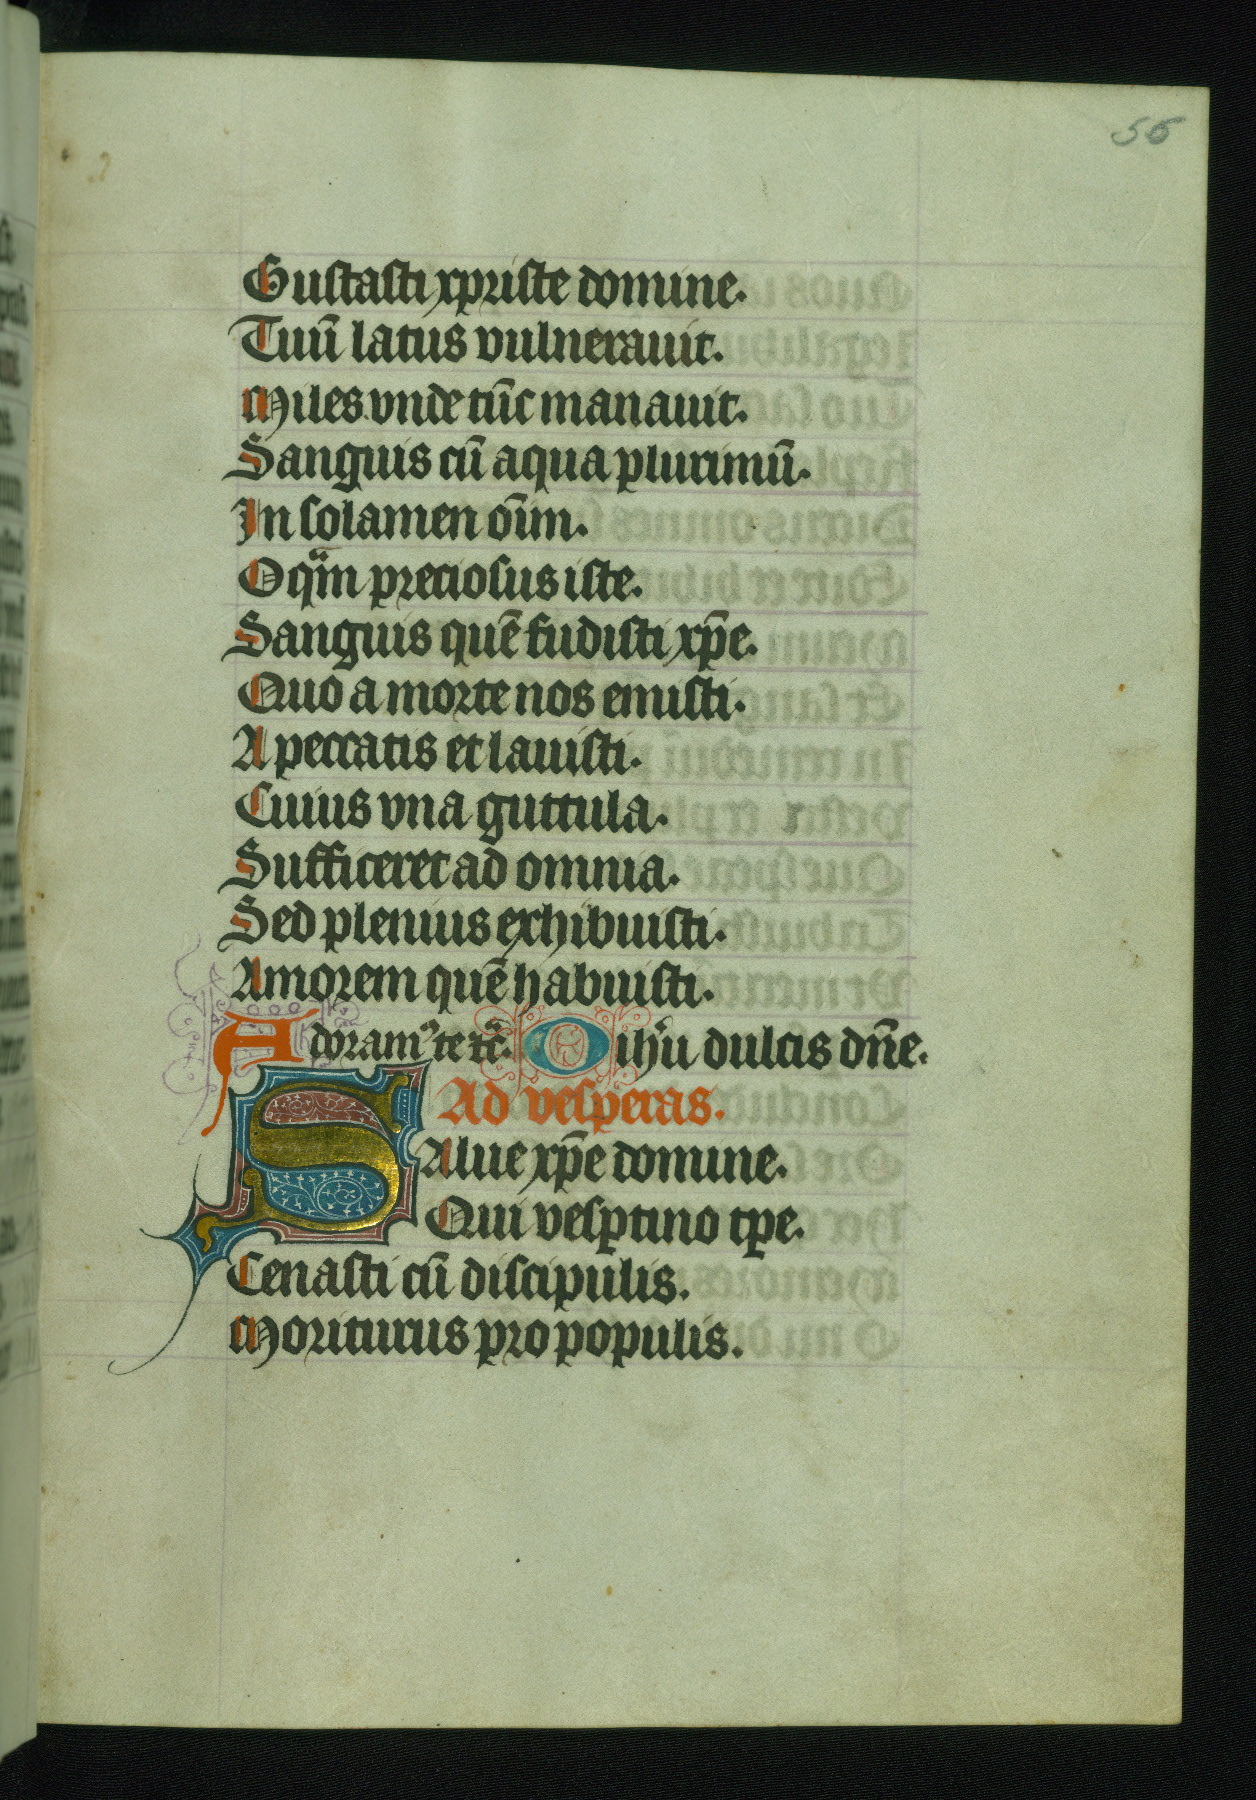 56
Gustasti xpriste domine.
Tuū latus vulnerauit.
Miles vnde tūc manauit.
Sanguis cū aqua plurimū.
In solamen oīm.
O qm̄ preciosus iste.
Sanguis quē fudisti xp̄e.
Quo a morte nos emisti.
A peccatis et lauisti.
Cuius vna guttula.
Sufficeret ad omnia.
Sed plenius exhibuisti.
Amorem quē habuisti.
Adoram⁹ te tc̄. O ihū dulcis dn̄e.
Ad vesperas.
Salue xp̄e domine.
Qui vesptino tp̄e.
Cenasti cū discipulis.
Moriturus pro populis.